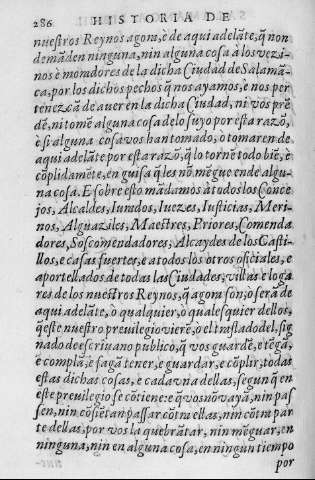 286 HISTORIA DE
nuestros Reynos agora, è de aqui adelãte, q̃ non
demãden ninguna, nin alguna cosa à los vezi-
nos è moradores de la dicha Ciudad de Salamã-
ca, por los dichos pechos q̃ nos ayamos, è nos per
tenezcã de auer en la dicha Ciudad, ni vos prẽ
dẽ, ni tomẽ alguna cosa delo suyo por esta razõ,
è si alguna cosa vos han tomado, ò tomaren de
aqui adelãte por esta razõ, q̃ lo tornẽ todo biẽ, è
cõplidamẽte, en guisa q̃ les nõ mẽgue ende algu-
na cosa. E sobre esto mãdamos à todos los Conce
jos, Alcaldes, Iurados, Iuezes, Iusticias, Meri-
nos, Alguaziles, Maestres, Priores, Comenda
dores, Soscomendadores, Alcaydes de los Casti-
llos, e casas fuertes, e a todos los otros oficiales, e
aportellados de todas las Ciudades, villas e loga
res de los nuestros Reynos, q̃ agora son, o serã de
aqui adelãte, o qualquier, o qualesquier dellos,
q̃ este nuestro preuilegio vierẽ, o el traslado del, sig
nado de escriuano publico, q̃ vos guardẽ, e tẽgã,
e complã, e fagã tener, e guardar, e cõplir, todas
estas dichas cosas, e cada vna dellas, segun q̃ en
este preuilegio se cõtiene: e q̃ vos nõ vayã, nin pas
sen, nin cõsiẽtan passar cõtra ellas, nin cõtra par
te dellas, por vos la quebrãtar, nin mẽguar, en
ninguna, nin en alguna cosa, en ningun tiempo
por